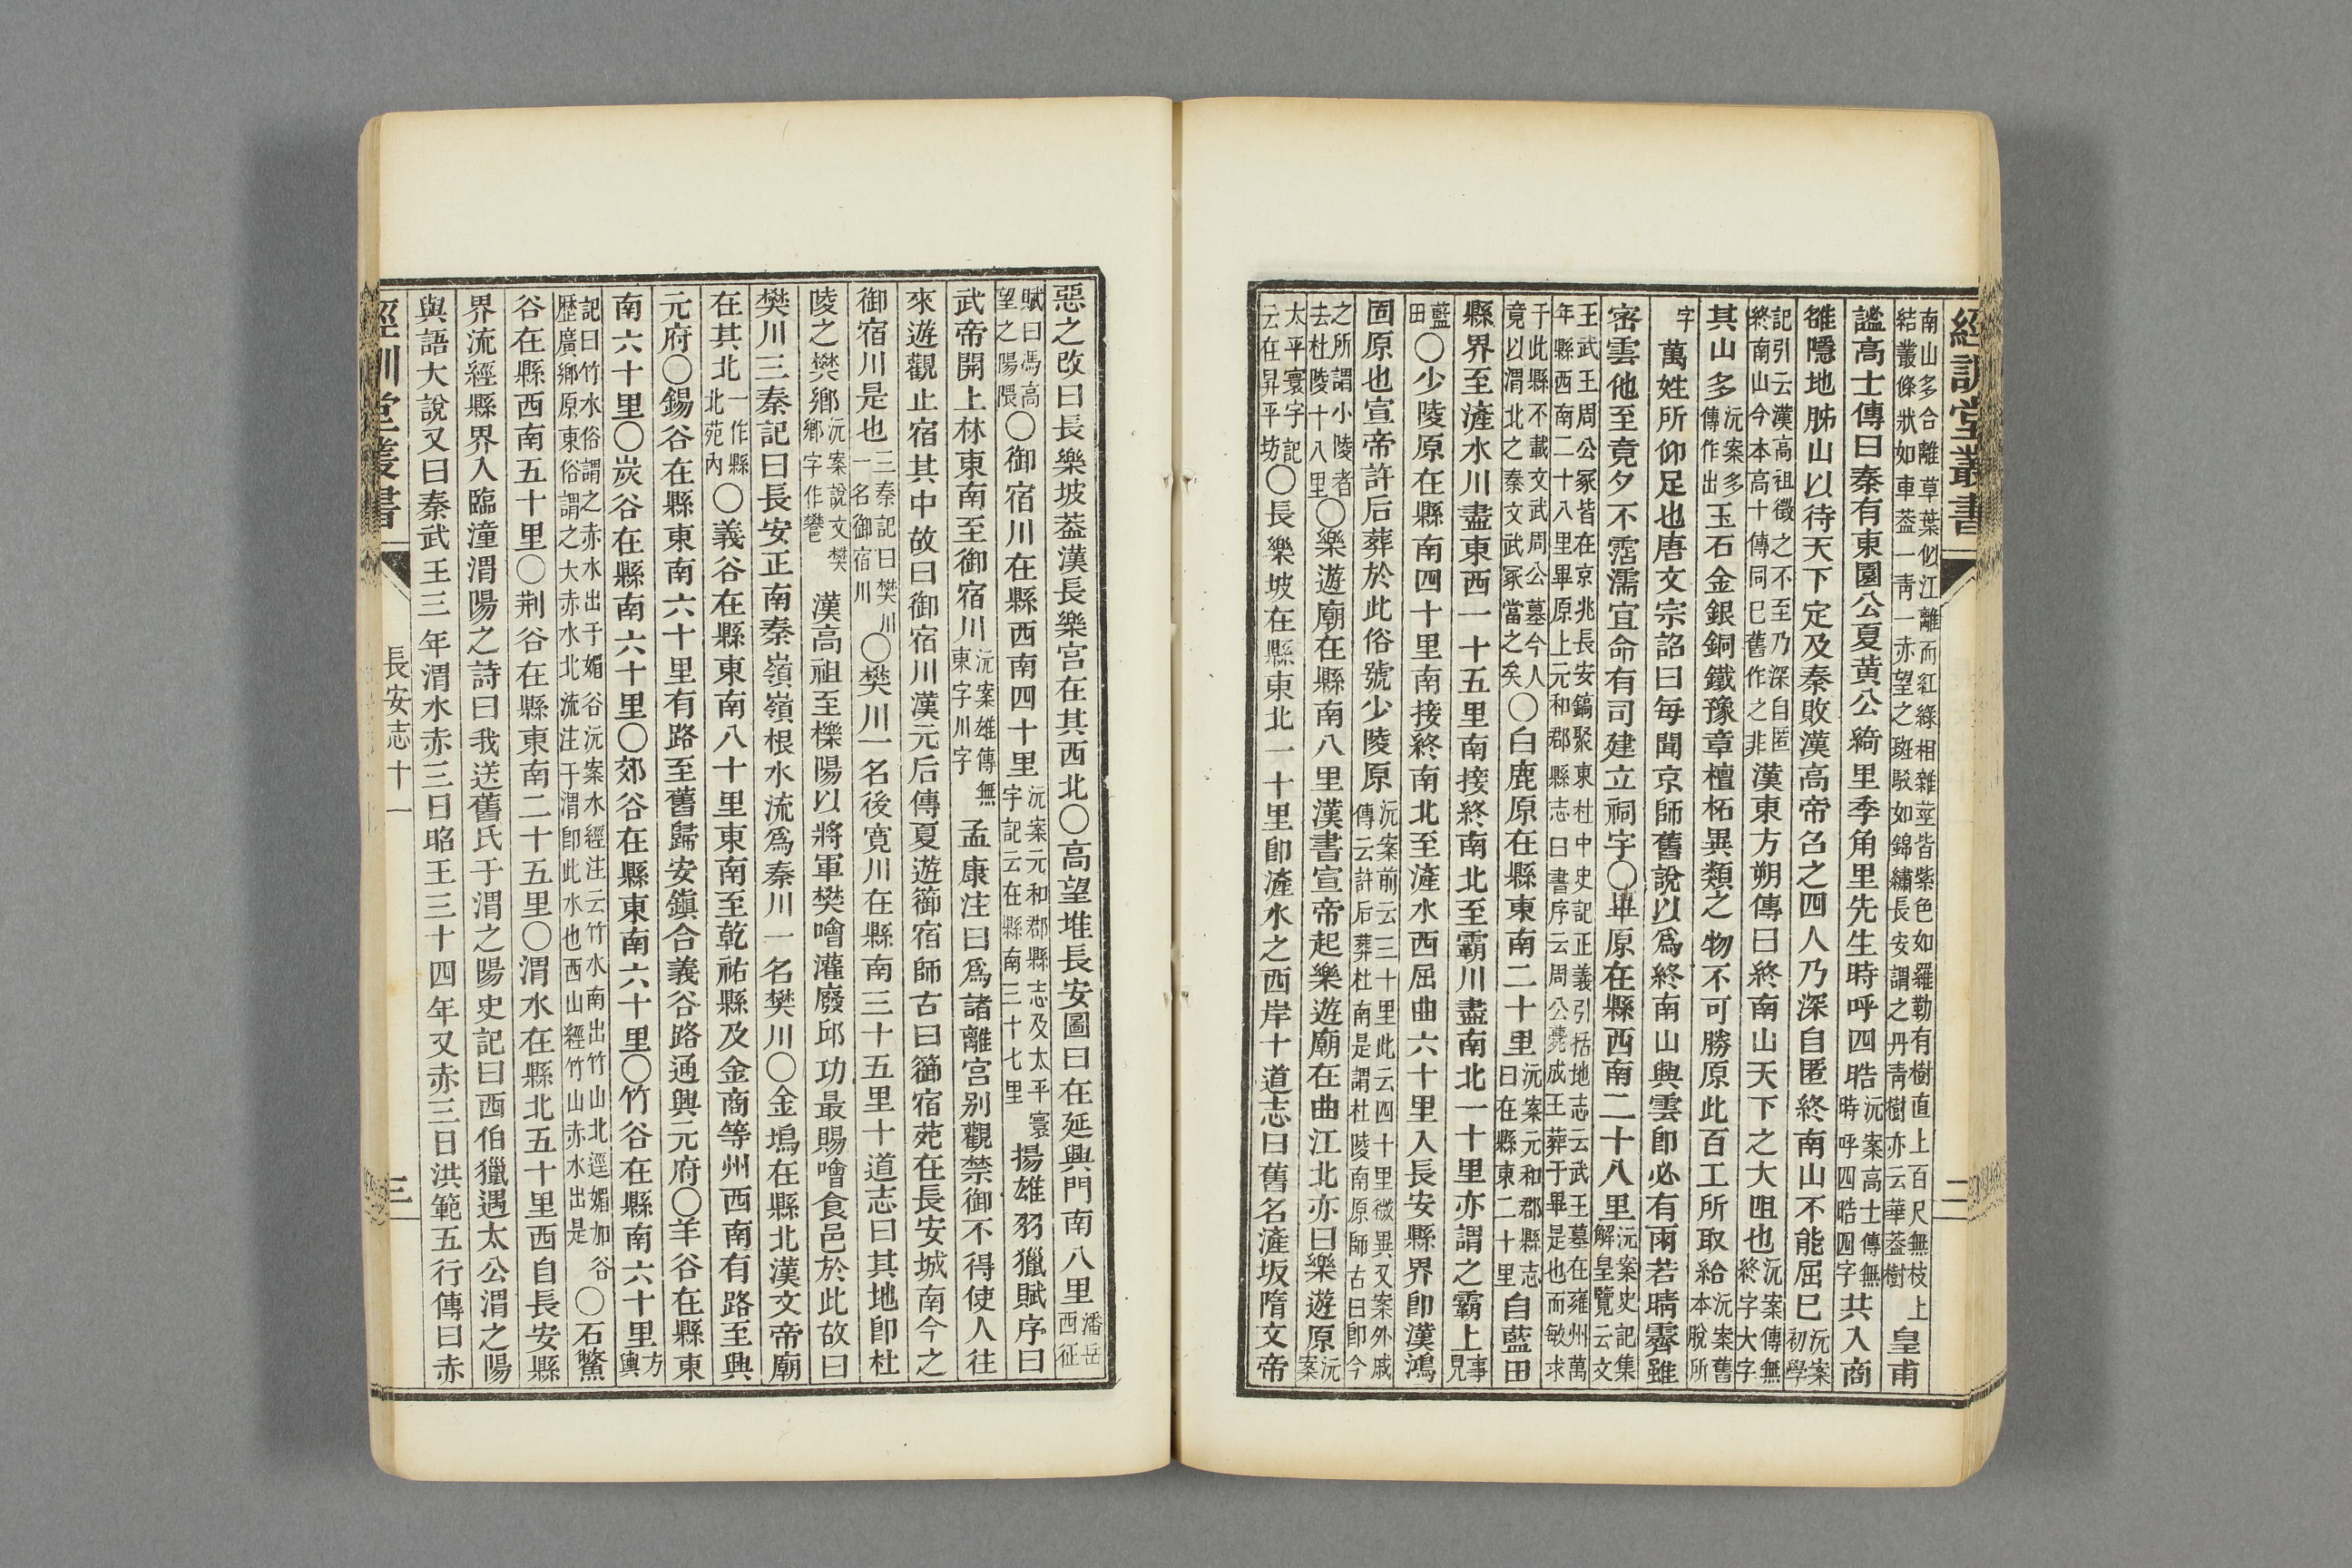 經訓堂叢書 二
南山多合離草葉似江離而紅綠相雜莖皆紫色如羅勒有樹直上百尺無枝上結叢條狀如車葢一靑一赤望之斑駁如錦繡長安謂之丹靑樹亦云華葢樹皇甫
謐高士傳曰秦有東園公夏黃公綺里季角里先生時呼四晧沅案高士傳無時呼四晧四字共入商
雒隱地胏山以待天下定及秦敗漢高帝召之四人乃深自匿終南山不能屈巳沅案初學
記引云漢高祖徵之不至乃深自匿終南山今本高十傳同巳舊作之非漢東方朔傳曰終南山天下之大阻也沅案傳無終字大字
其山多沅案多傳作出玉石金銀銅鐵豫章檀柘異類之物不可勝原此百工所取給沅案舊本脫所
字萬姓所仰足也唐文宗詔曰每聞京師舊說以爲終南山興雲卽必有雨若晴霽雖
密雲他至竟夕不霑濡宜命有司建立祠宇〇畢原在縣西南二十八里沅案史記集解皇覽云文
王武王周公冢皆在京兆長安鎬聚東杜中史記正義引括地志云武王墓在雍州萬年縣西南二十八里畢原上元和郡縣志曰書序云周公薨成王葬于畢是也而敏求
于此縣不載文武周公墓今人竟以渭北之秦文武冢當之矣〇白鹿原在縣東南二十里沅案元和郡縣志曰在縣東二十里自藍田
縣界至滻水川盡東西一十五里南接終南北至霸川盡南北一十里亦謂之霸上事見
藍田〇少陵原在縣南四十里南接終南北至滻水西屈曲六十里入長安縣界卽漢鴻
固原也宣帝許后葬於此俗號少陵原沅案前云三十里此云四十里微異又案外戚傳云許后葬杜南是謂杜陵南原師古曰卽今
之所謂小陵者去杜陵十八里〇樂遊廟在縣南八里漢書宣帝起樂遊廟在曲江北亦曰樂遊原沅案
太平寰宇記云在昇平坊〇長樂坡在縣東北一十里卽滻水之西岸十道志曰舊名滻坂隋文帝
惡之改曰長樂坡葢漢長樂宮在其西北〇高望堆長安圖曰在延興門南八里潘岳西征
賦曰馮高望之陽隈〇御宿川在縣西南四十里沅案元和郡縣志及太平寰字記云在縣南三十七里揚雄羽獵賦序曰
武帝開上林東南至御宿川沅案雄傳無東字川字孟康注曰爲諸離宮别觀禁御不得使人往
來遊觀止宿其中故曰御宿川漢元后傳夏遊篽宿師古曰篽宿苑在長安城南今之
御宿川是也三秦記曰樊川一名御宿川〇樊川一名後寬川在縣南三十五里十道志曰其地卽杜
陵之樊鄉沅案說文樊鄉字作鄨漢高祖至櫟陽以將軍樊噲灌廢邱功最賜噲食邑於此故曰
樊川三秦記曰長安正南秦嶺嶺根水流爲秦川一名樊川〇金塢在縣北漢文帝廟
在其北一作縣北苑內〇義谷在縣東南八十里東南至乾祐縣及金商等州西南有路至興
元府〇錫谷在縣東南六十里有路至舊歸安鎭合義谷路通興元府〇羊谷在縣東
南六十里〇炭谷在縣南六十里〇郊谷在縣東南六十里〇竹谷在縣南六十里方輿
記曰竹水俗謂之赤水出于媚谷沅案水經注云竹水南出竹山北逕媚加谷歷廣鄉原東俗謂之大赤水北流注于渭卽此水也西山經竹山赤水出是〇石鱉
谷在縣西南五十里〇荆谷在縣東南二十五里〇渭水在縣北五十里西自長安縣
界流經縣界入臨潼渭陽之詩曰我送舊氏于渭之陽史記曰西伯獵遇太公渭之陽
與語大說又曰秦武王三年渭水赤三日昭王三十四年又赤三日洪範五行傳曰赤
經訓堂叢書 長安志十一 三